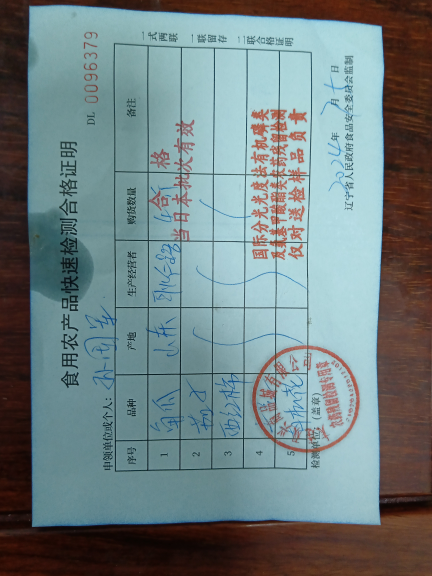 食用农产品快速检测合格证明
DL 0096379
申领单位或个人：孙国军
一式两联 一联留存 二联合格证明
序号 品种 产地 生产经营者 购货数量 备注
1 黄瓜 山东
2 茄子
3 西红柿
4
5 西兰花
合格
当日本批次有效
国际分光光度法有机磷类
及氨基甲酸酯类农药残留检测
仅对送检样品负责
农药残留检测专用章
检测单位：（盖章）
2024年 2月 5日
辽宁省人民政府食品安全委员会监制